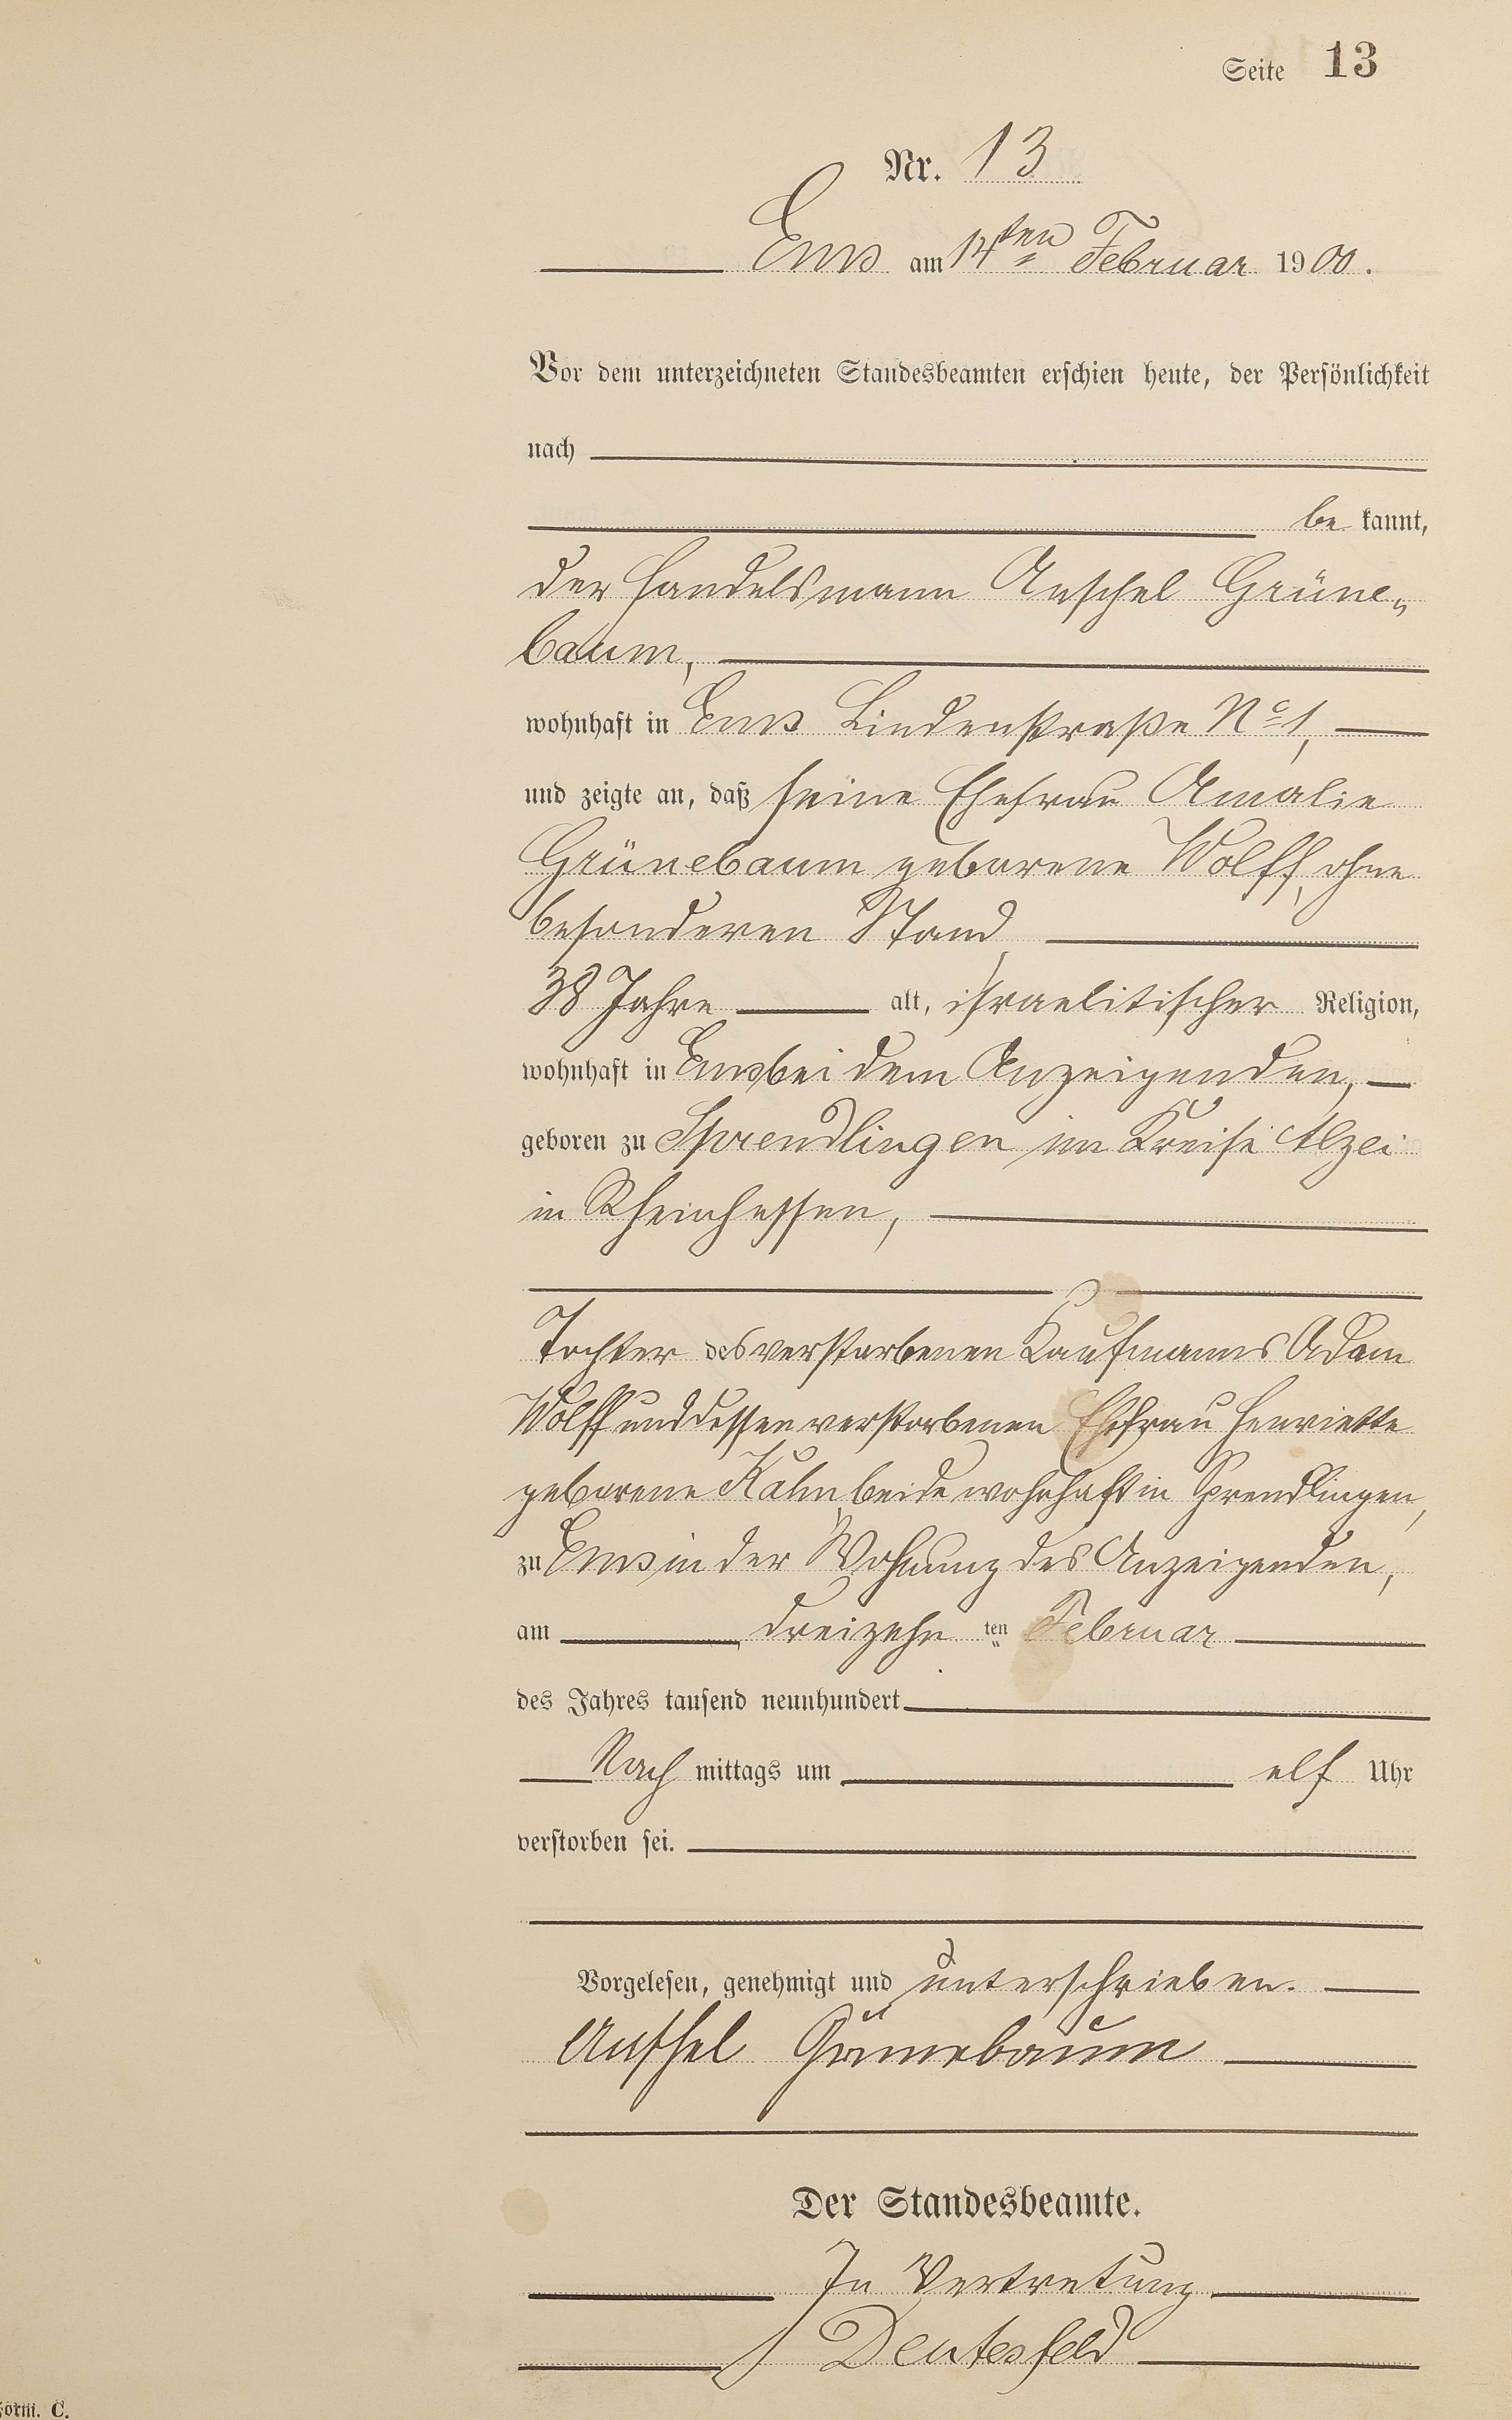 Seite 13
Nr. 13
Ems am 14ten Februar 1900.
Vor dem unterzeichneten Standesbeamten erschien heute, der Persönlichkeit
nach
be kannt,
der Handelsmann Anschel Grüne-
baum,
wohnhaft in Ems Lindenstraße No 1,
und zeigte an, daß seine Ehefrau Amalie
Grünebaum geborene Wolff, ohne
besonderen Stand,
38 Jahre alt, israelitischer Religion,
wohnhaft in Ems bei dem Anzeigenden,
geboren zu Sprendlingen im Kreise Alzei
in Rheinhessen,
Tochter des verstorbenen Kaufmanns Adam
Wolff und dessen verstorbenen Ehefrau Henriette
geborene Kahn, beide wohnhaft in Sprendlingen,
zu Ems in der Wohnung des Anzeigenden,
am dreizehn ten Februar
des Jahres tausend neunhundert
Nach mittags um elf Uhr
verstorben sei.
Vorgelesen, genehmigt und unterschrieben.
Anschel Grünebaum
Der Standesbeamte.
In Vertretung
Deutesfeld
Form. C.